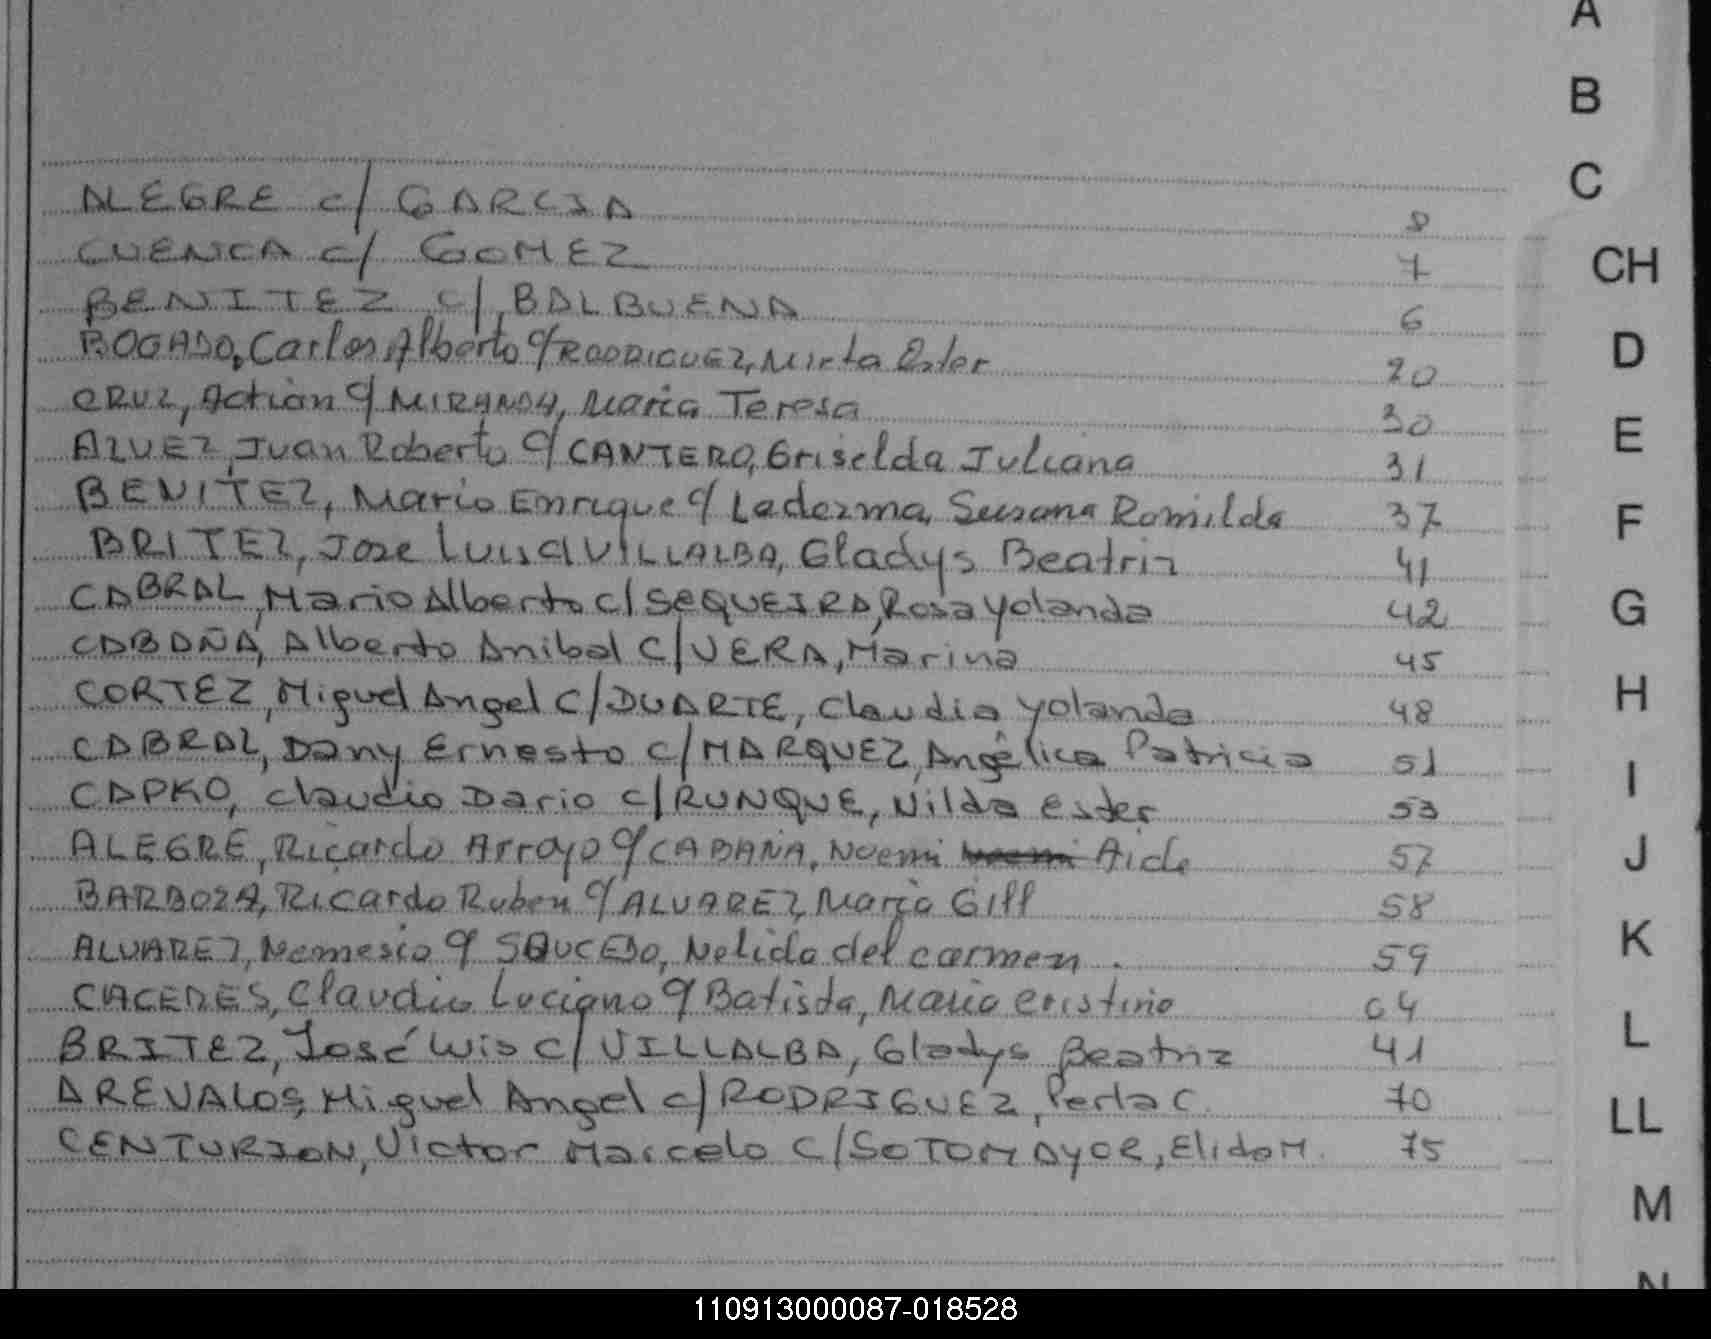 A
B
C
ALEGRE c/ GARCIA 8
CUENCA c/ GOMEZ 7
CH
BENITEZ c/ BALBUENA 6
BOGADO, Carlos Alberto c/ RODRIGUEZ, Mirta Ester 20
D
CRUZ, Adrian c/ MIRANDA, Maria Teresa 30
E
ALVEZ, Juan Roberto c/ CANTERO, Griselda Juliana 31
BENITEZ, Mario Enrique c/ Ledezma, Susana Romilda 37
F
BRITEZ, Jose Luis c/ VILLALBA, Gladys Beatriz 41
CABRAL, Mario Alberto c/ SEQUEIRA, Rosa Yolanda 42
G
CABAÑA, Alberto Anibal c/ VERA, Marina 45
CORTEZ, Miguel Angel c/ DUARTE, Claudia Yolanda 48
H
CABRAL, Dany Ernesto c/ MARQUEZ, Angélica Patricia 51
I
CAPKO, Claudio Dario c/ RUNQUE, Nilda Ester 53
ALEGRE, Ricardo Arroyo c/ CABAÑA, Noemi Aide 57
J
BARBOZA, Ricardo Ruben c/ ALVAREZ, Maria Gill 58
ALVAREZ, Nemesio c/ SAUCEDO, Nelida del carmen. 59
K
CACERES, Claudio Luciano c/ Batista, Maria Cristina 64
L
BRITEZ, José Luis c/ VILLALBA, Gladys Beatriz 41
AREVALOS, Miguel Angel c/ RODRIGUEZ, Perla C. 70
LL
CENTURION, Victor Marcelo c/ SOTOMAYOR, Elida M. 75
M
N
110913000087-018528